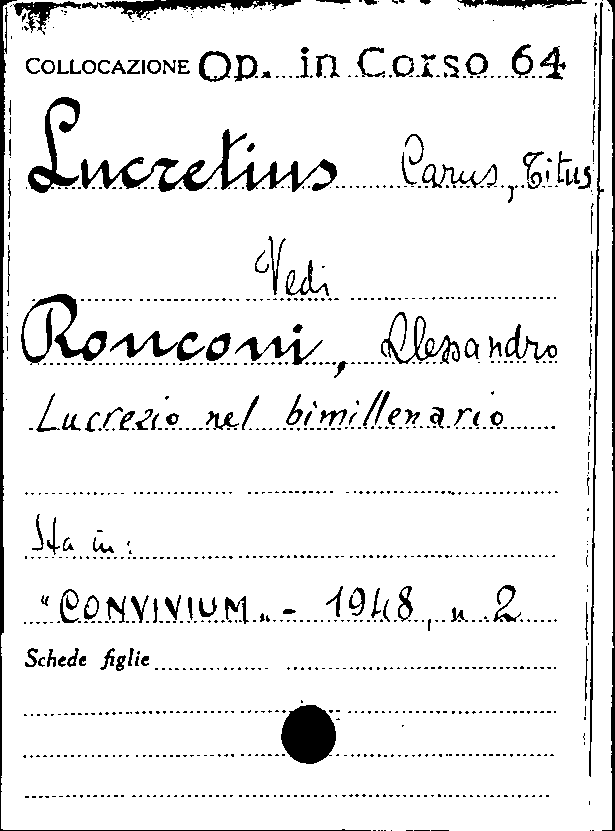 COLLOCAZIONE Op. in Corso 64
Lucretius Carus, Titus
Vedi
Ronconi, Alessandro
Lucrezio nel bimillenario
Sta in:
"CONVIVIUM" - 1948, n. 2
Schede figlie